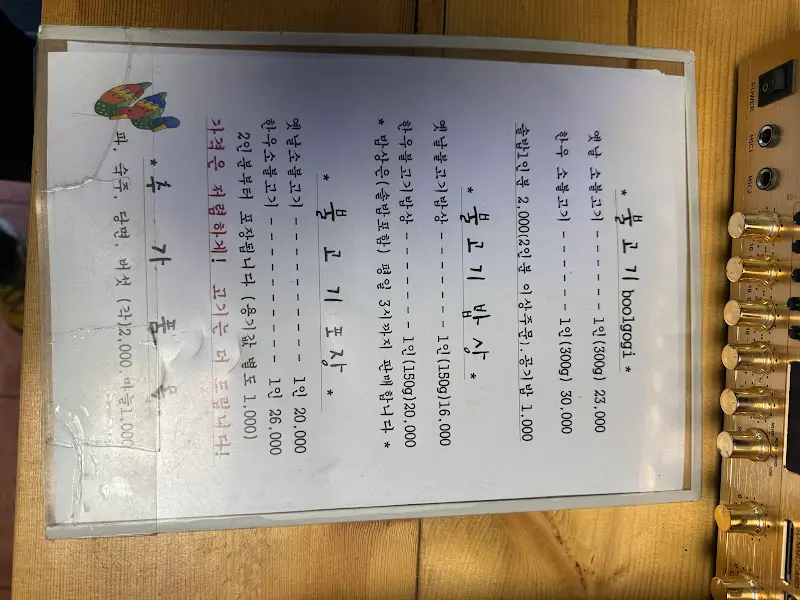 * 불 고 기 boolgogi *
옛날 소불고기 - - - - - - 1인(300g) 23,000
한우 소불고기 - - - - - - 1인(300g) 30,000
솥밥1인분 2,000(2인분 이상주문).공기밥 1,000
* 불고기 밥상 *
옛날불고기밥상 - - - - - - - - 1인(150g)16,000
한우불고기밥상 - - - - - - - - 1인(150g)20,000
* 밥상은(솥밥포함) 평일 3시까지 판매합니다 *
* 불 고 기 포 장 *
옛날소불고기 - - - - - - - - - - 1인 20,000
한우소불고기 - - - - - - - - - - 1인 26,000
2인분부터 포장됩니다 (용기값 별도 1,000)
가격은 저렴하게! 고기는 더 드립니다!
* 추 가 품 목
파, 숙주, 당면, 버섯 (각)2,000, 마늘1,000
POWER
MIC1
MIC2